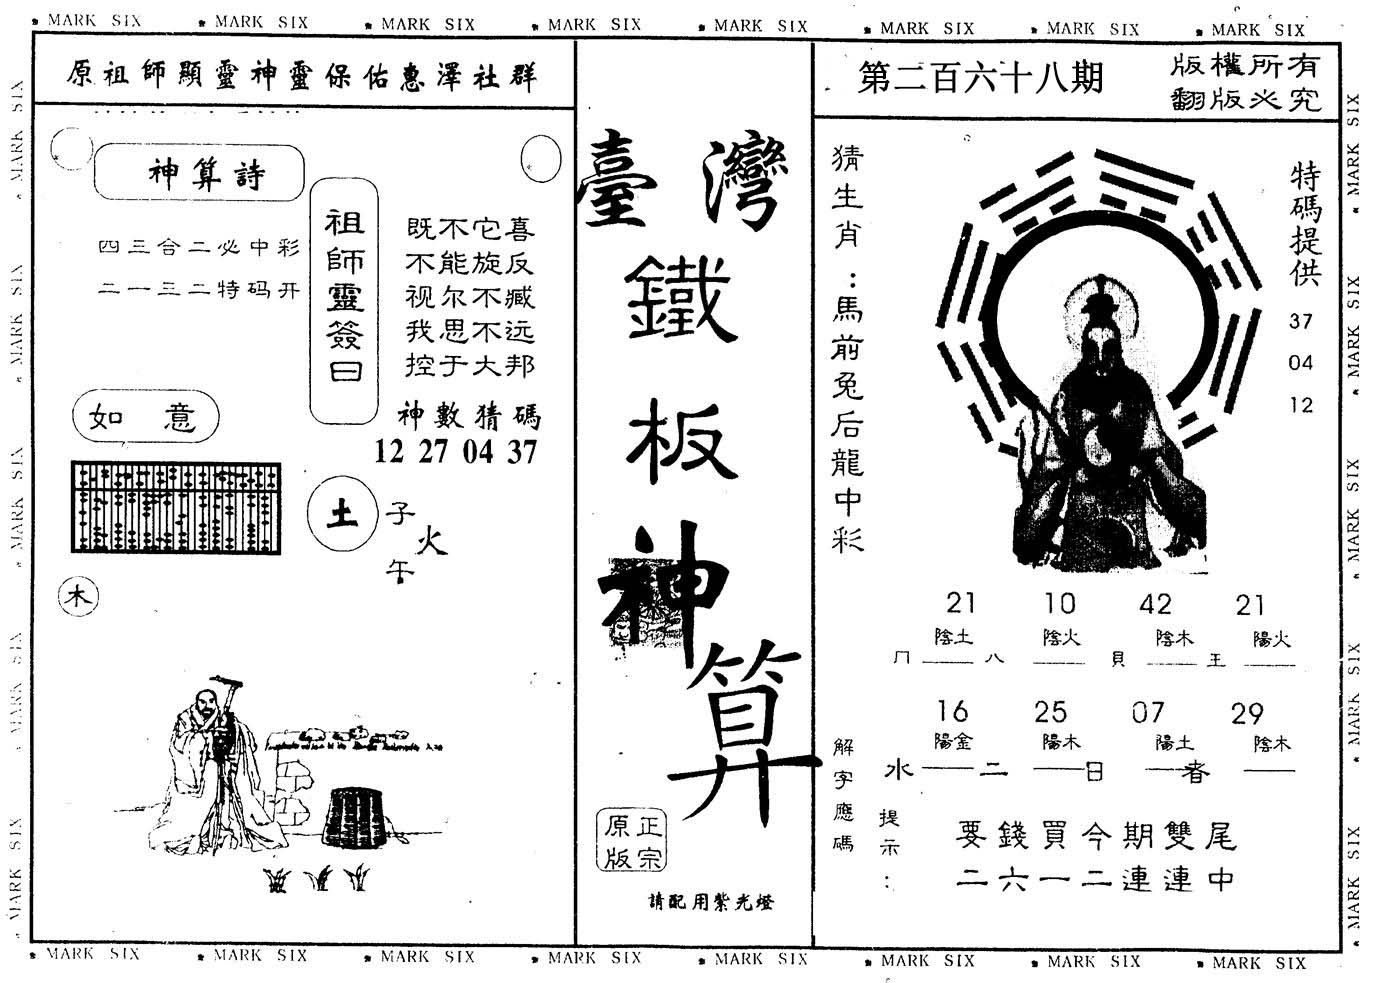 MARK SIX MARK SIX MARK SIX MARK SIX MARK SIX MARK SIX MARK SIX MARK SIX
原祖師顯靈神靈保佑惠澤社群
神算詩
四三合二必中彩
二一三二特码开
祖師靈簽曰
既不它喜
不能旋反
视尔不臧
我思不远
控于大邦
神數猜碼
12 27 04 37
如意
土
子
火
午
木
臺灣
鐵
板
神
算
正宗
原版
請配用紫光燈
第二百六十八期
版權所有
翻版必究
猜生肖：馬前兔后龍中彩
特碼提供
37
04
12
21 10 42 21
陰土 陰火 陰木 陽火
冂 八 貝 王
16 25 07 29
陽金 陽木 陽土 陰木
水 二 日 者
解字應碼
提示：
要錢買今期雙尾
二六一二連連中
MARK SIX MARK SIX MARK SIX MARK SIX MARK SIX MARK SIX MARK SIX MARK SIX
MARK SIX MARK SIX MARK SIX MARK SIX MARK SIX
MARK SIX MARK SIX MARK SIX MARK SIX MARK SIX